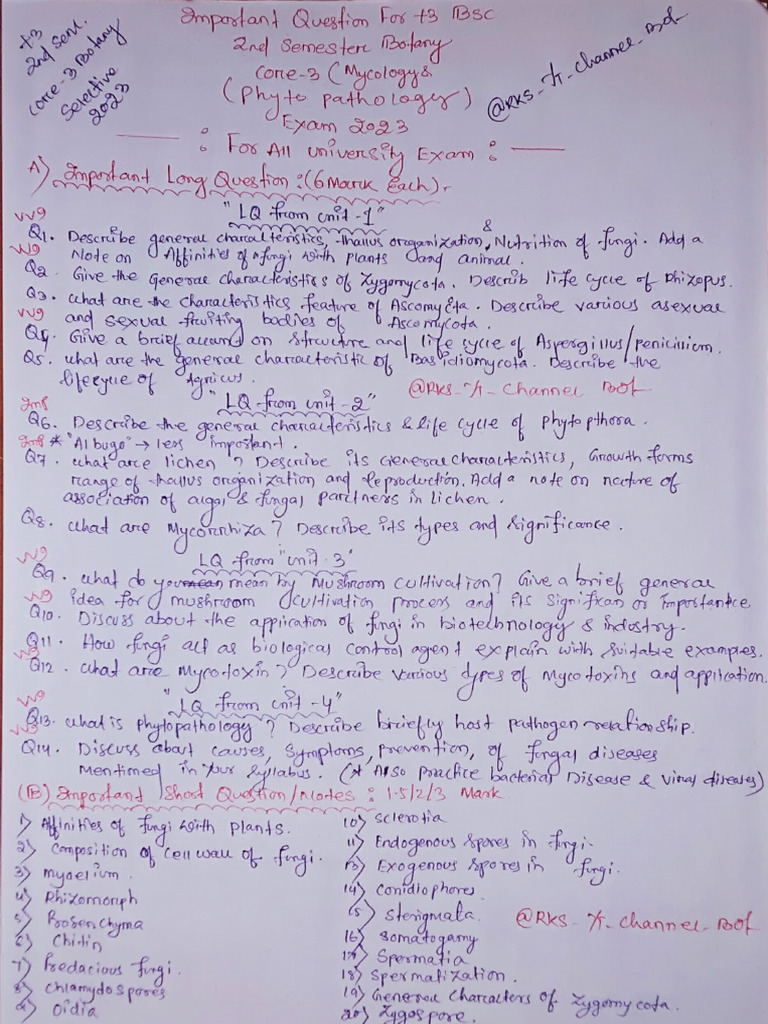 Important Question For +3 BSC
2nd Semester Botany
Core-3 (Mycology &
(Phyto pathology)
Exam 2023
: For All University Exam :
+3
2nd Sem.
Core-3 Botany
Selective
2023
@RKS-X-Channel-Bof
A) Important Long Question :(6 Mark Each).
"LQ from unit-1"
VVI
Q1. Describe general characteristics, thallus organization, & Nutrition of fungi. Add a
Note on Affinities of fungi with plants and animal.
VVI
Q2. Give the General characteristics of Zygomycota. Describ life cycle of Rhizopus.
Q3. What are the characteristics feature of Ascomycota. Describe various asexual
VVI
and sexual fruiting bodies of Ascomycota.
Q4. Give a brief account on structure and life cycle of Aspergillus/penicillium.
Q5. What are the general characteristic of Basidiomycota. Describe the
lifecycle of Agricus.
@RKS-X-Channel Bof
"LQ from unit-2"
Imp
Q6. Describe the general characteristics & life cycle of phytopthora.
Imp * "Albugo" → less important.
Q7. What are lichen ? Describe its General characteristics, Growth forms
range of thallus organization and Reproduction. Add a note on nature of
association of algal & fungal partners in lichen.
Q8. What are Mycorrhiza? Describe its types and significance.
LQ from "unit-3"
VVI
Q9. What do you mean by Mushroom cultivation? Give a brief general
VVI
idea for mushroom cultivation process and its significan or importantce
Q10. Discuss about the application of fungi in biotechnology & industry.
Q11. How fungi act as biological control agent explain with suitable examples.
VVI
Q12. What are Mycotoxin? Describe various types of mycotoxins and application.
"LQ from unit-4"
VVI
Q13. What is phytopathology ? Describe briefly host pathogen relationship.
VVI
Q14. Discuss about causes, symptoms, prevention, of fungal diseases
Mentimed in your syllabus. (* Also practice bacterial Disease & viral diseases)
(B) Important Short Question/Notes : 1.5/2/3 Mark
1) Affinities of fungi with plants.
2) Composition of cell wall of fungi.
3) Mycelium.
4) Rhizomorph
5) Prosenchyma
6) Chitin
7) Predacious fungi.
8) Chlamydospores
9) Oidia
10) Sclerotia
11) Endogenous spores in fungi.
13) Exogenous spores in fungi.
14) Conidiophores
15) Sterigmata.
@RKS-X-Channel-Bof
16) Somatogamy
17) Spermatia
18) Spermatization.
19) General Characters of Zygomycota.
20) Zygospore.